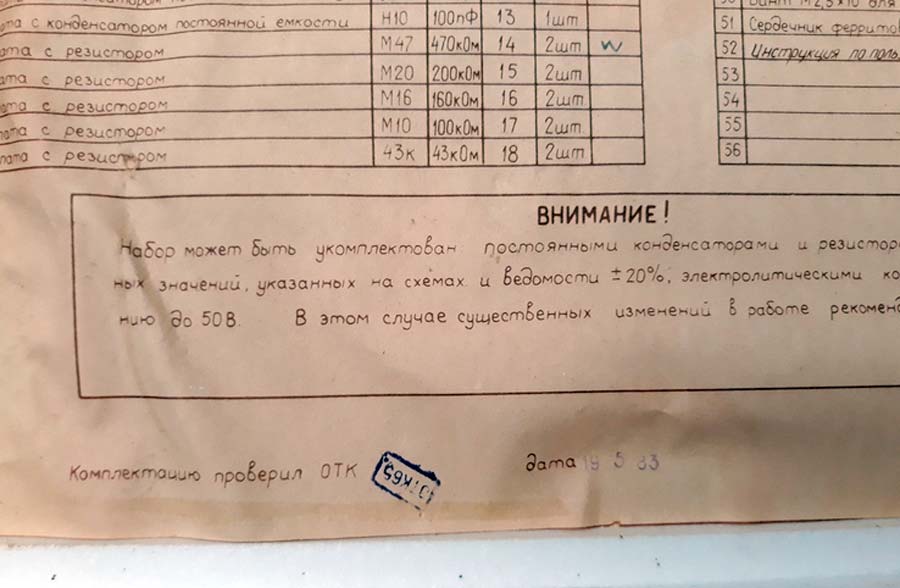 ата с конденсатором постоянной емкости Н10 100пФ 13 1шт
ата с резистором М47 470кОм 14 2шт
ата с резистором М20 200кОм 15 2шт
ата с резистором М16 160кОм 16 2шт
ата с резистором М10 100кОм 17 2шт
лата с резистором 43к 43кОм 18 2шт
51 Сердечник феррито
52 Инструкция по поль
53
54
55
56
ВНИМАНИЕ!
Набор может быть укомплектован постоянными конденсаторами и резистор
ных значений, указанных на схемах и ведомости ±20%; электролитическими ко
нию до 50В. В этом случае существенных изменений в работе рекоменд
Комплектацию проверил ОТК ОТК65 дата 19 5 83